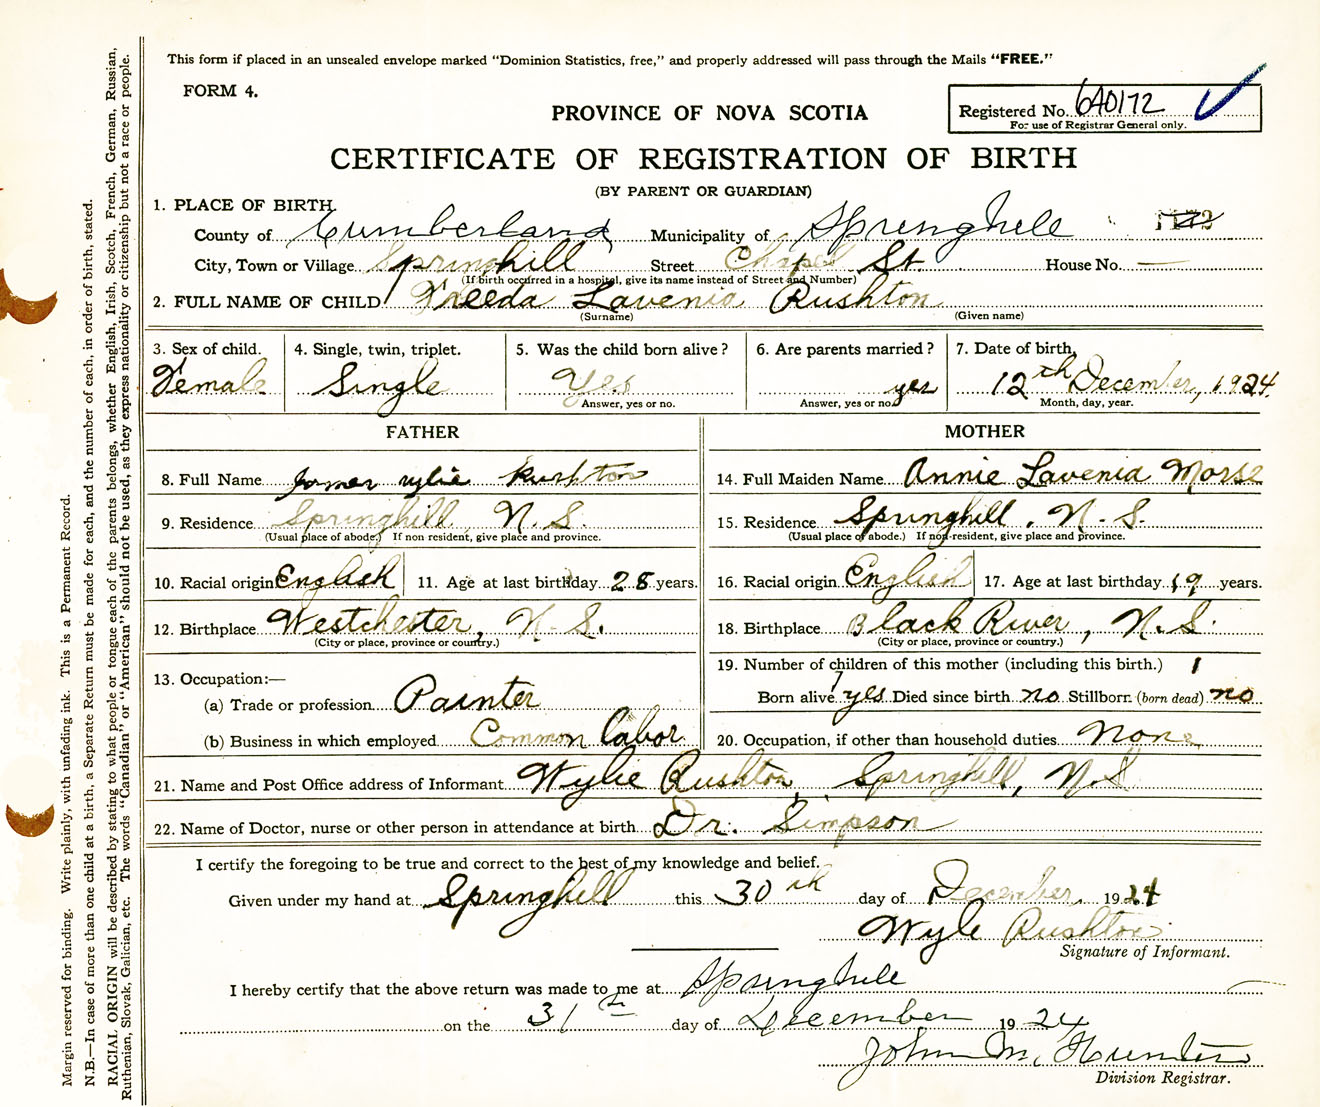 This form if placed in an unsealed envelope marked "Dominion Statistics, free," and properly addressed will pass through the Mails "FREE."
FORM 4.
PROVINCE OF NOVA SCOTIA
Registered No. 640172
For use of Registrar General only.
CERTIFICATE OF REGISTRATION OF BIRTH
(BY PARENT OR GUARDIAN)
1. PLACE OF BIRTH
County of Cumberland Municipality of Springhill
City, Town or Village Springhill Street Chapel St. House No. —
(If birth occurred in a hospital, give its name instead of Street and Number)
2. FULL NAME OF CHILD Freeda Lavenia Rushton
(Surname) (Given name)
3. Sex of child. 4. Single, twin, triplet. 5. Was the child born alive? 6. Are parents married? 7. Date of birth,
Female Single Yes yes 12th December, 1924.
Answer, yes or no. Answer, yes or no. Month, day, year.
FATHER MOTHER
8. Full Name wylie Rushton 14. Full Maiden Name Annie Lavenia Morse
9. Residence Springhill, N.S. 15. Residence Springhill, N.S.
(Usual place of abode.) If non resident, give place and province. (Usual place of abode.) If non-resident, give place and province.
10. Racial origin English 11. Age at last birthday 28 years. 16. Racial origin English 17. Age at last birthday 19 years.
12. Birthplace Westchester, N.S. 18. Birthplace Black River, N.S.
(City or place, province or country.) (City or place, province or country.)
19. Number of children of this mother (including this birth.) 1
13. Occupation:—
Born alive? yes Died since birth no Stillborn (born dead) no
(a) Trade or profession Painter
(b) Business in which employed Common labor 20. Occupation, if other than household duties None
21. Name and Post Office address of Informant Wylie Rushton, Springhill, N.S
22. Name of Doctor, nurse or other person in attendance at birth Dr. Simpson
I certify the foregoing to be true and correct to the best of my knowledge and belief.
Given under my hand at Springhill this 30th day of December, 1924
Wyle Rushton
Signature of Informant.
I hereby certify that the above return was made to me at Springhill
on the 31th day of December 1924
John M. Hunter
Division Registrar.
Margin reserved for binding. Write plainly, with unfading ink. This is a Permanent Record.
N.B.—In case of more than one child at a birth, a Separate Return must be made for each, and the number of each, in order of birth, stated.
RACIAL ORIGIN will be described by stating to what people or tongue each of the parents belongs, whether English, Irish, Scotch, French, German, Russian,
Ruthenian, Slovak, Galician, etc. The words "Canadian" or "American" should not be used, as they express nationality or citizenship but not a race or people.